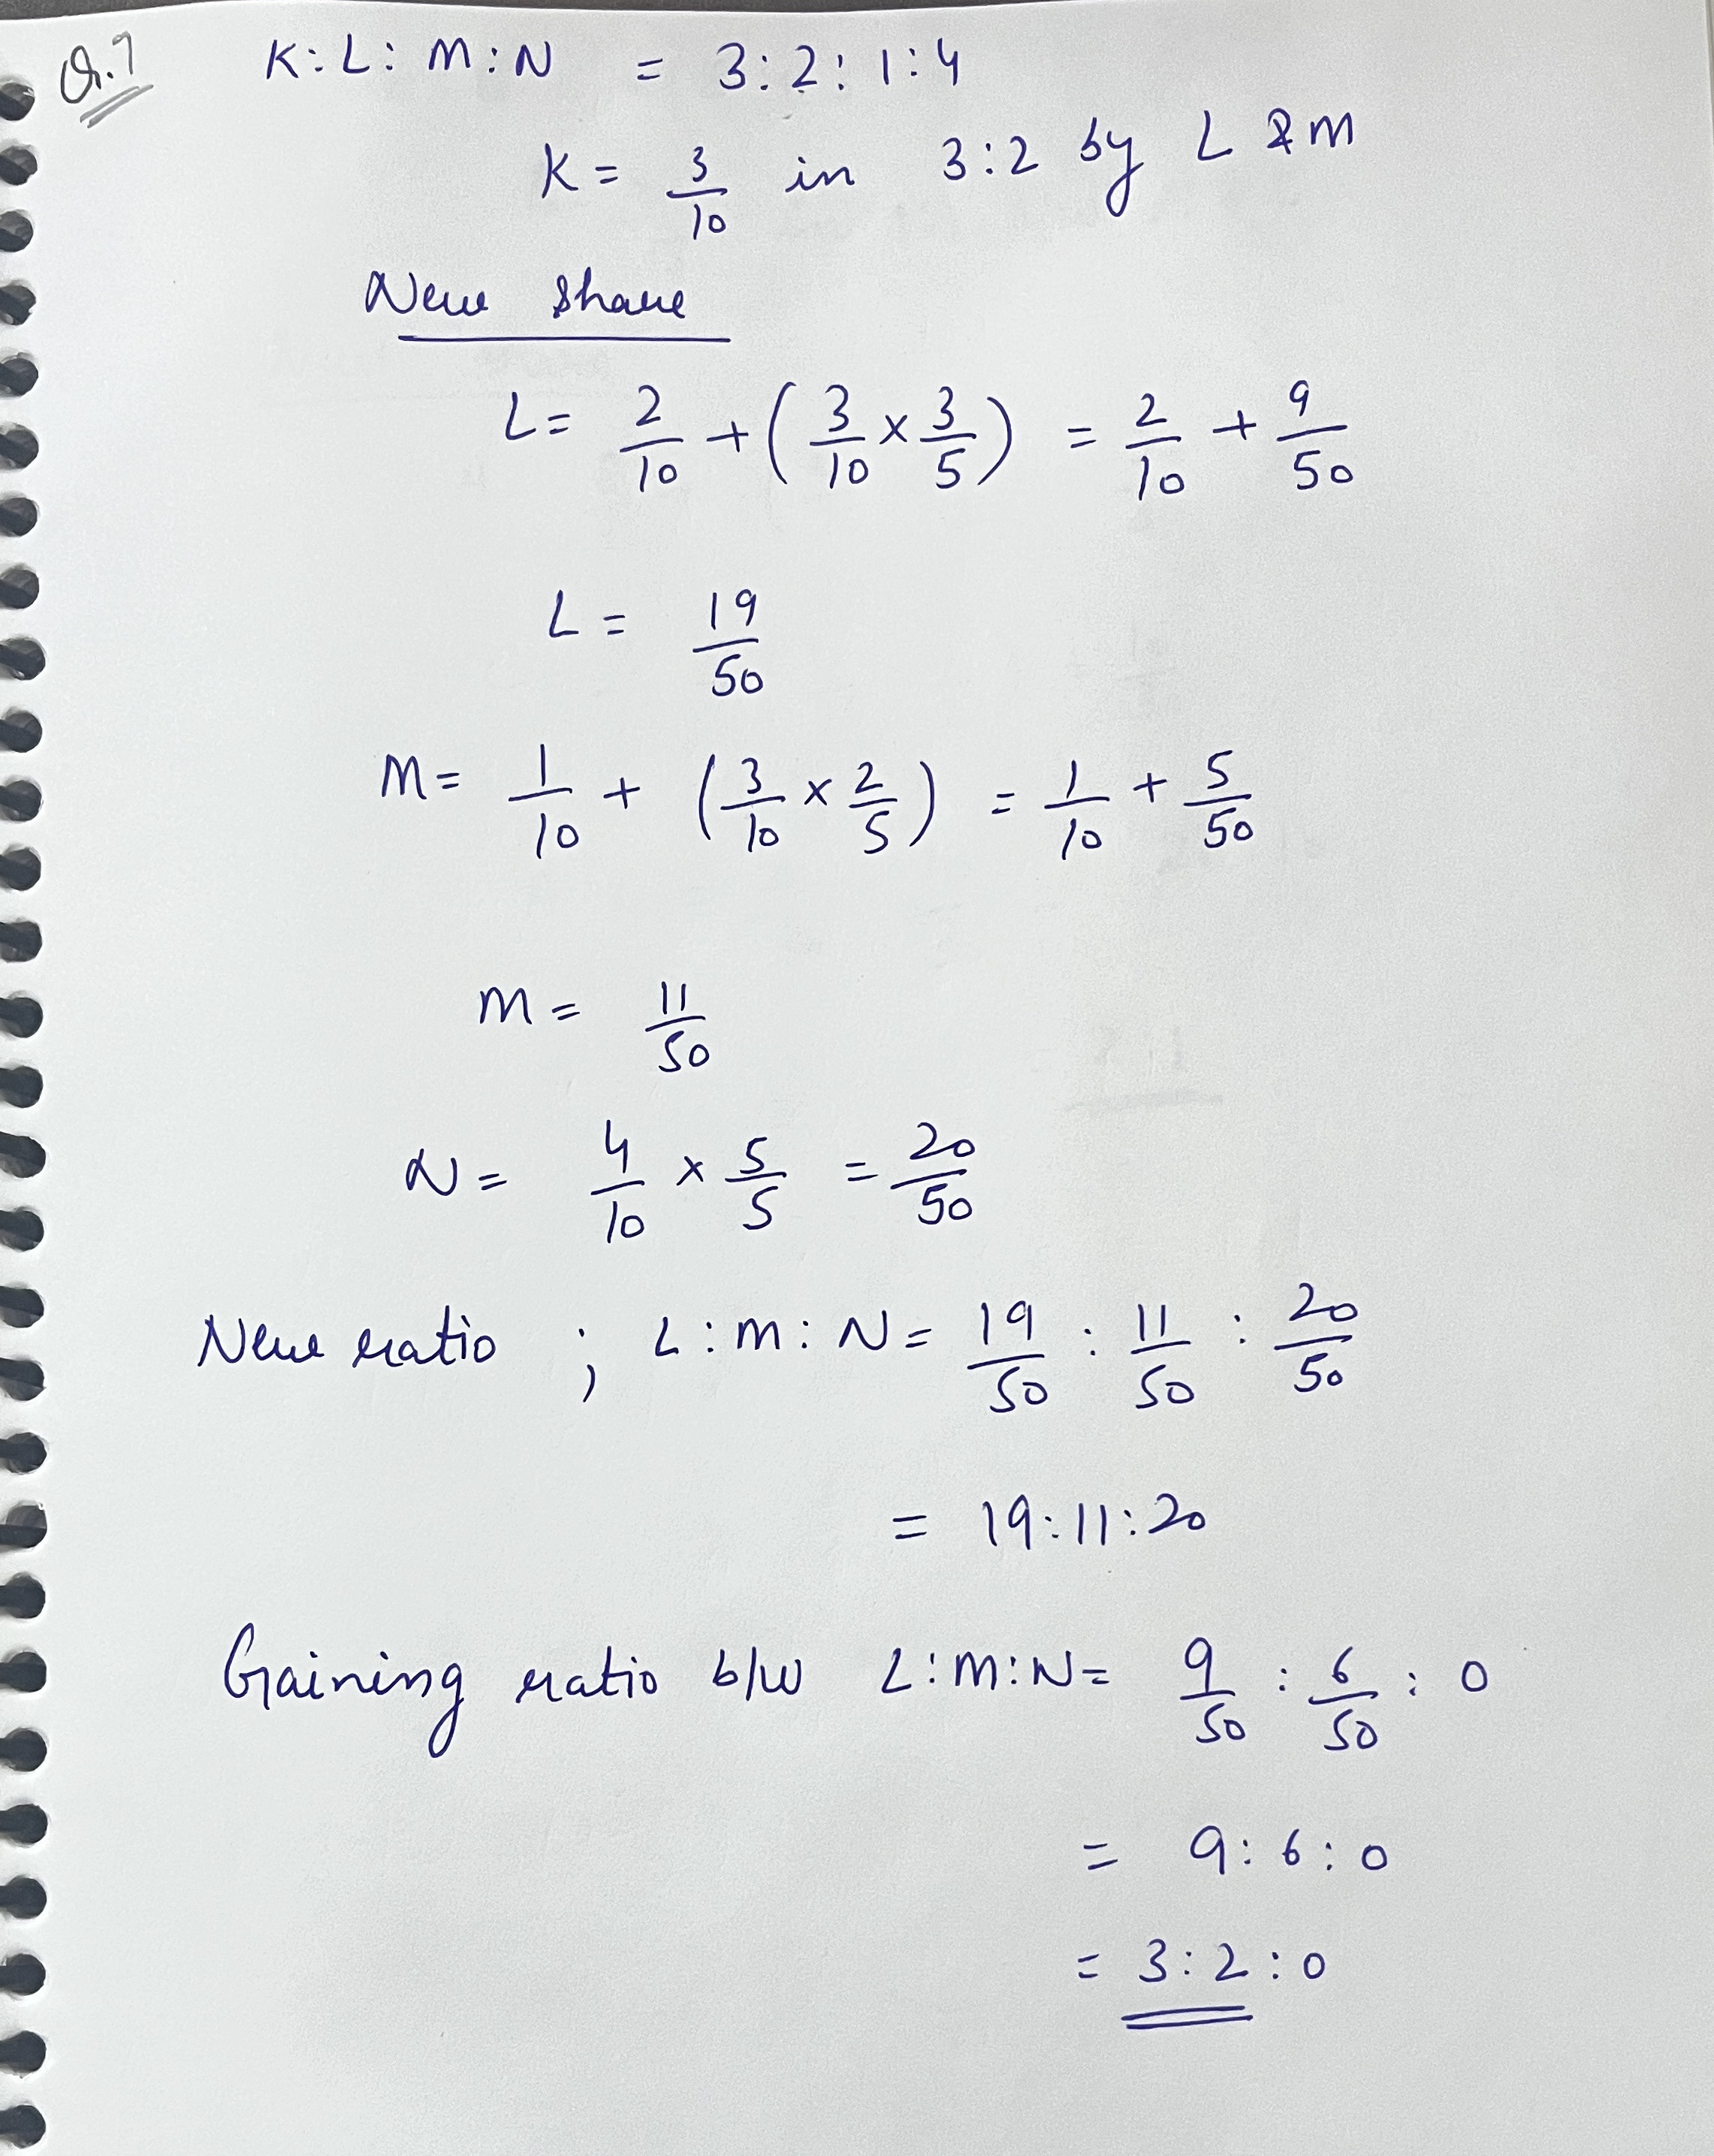 Q.7 K:L:M:N = 3:2:1:4
K = 3/10 in 3:2 by L & M
New share
L = 2/10 + (3/10 × 3/5) = 2/10 + 9/50
L = 19/50
M = 1/10 + (3/10 × 2/5) = 1/10 + 5/50
M = 11/50
N = 4/10 × 5/5 = 20/50
New ratio ; L:M:N = 19/50 : 11/50 : 20/50
= 19:11:20
Gaining ratio b/w L:M:N = 9/50 : 6/50 : 0
= 9:6:0
= 3:2:0